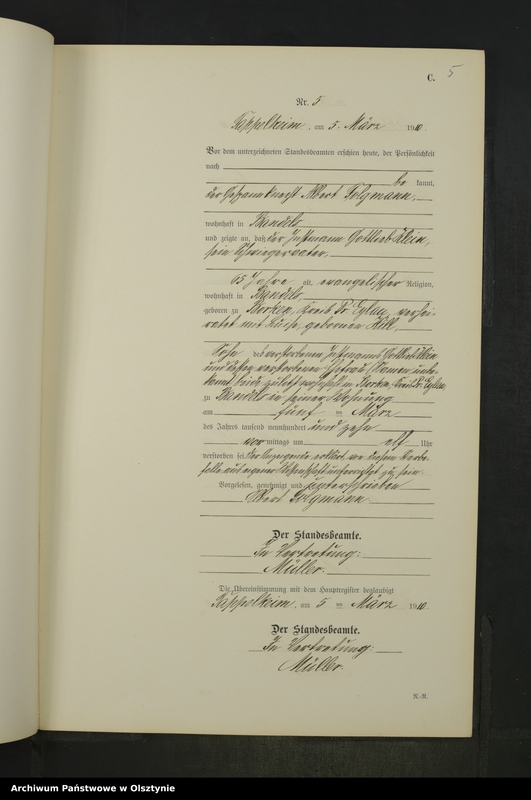 C. 5
Nr. 5
Kappelheim, am 5. März 1910.
Vor dem unterzeichneten Standesbeamten erschien heute, der Persönlichkeit
nach
be kannt,
der Gespannknecht Albert Folgmann,
wohnhaft in Bandels,
und zeigte an, daß der Instmann Gottlieb Klein,
sein Schwiegervater,
65 Jahre alt, evangelischer Religion,
wohnhaft in Bandels,
geboren zu Borken, Kreis Pr. Eylau, verhei-
ratet mit Luise, geborenen Hill,
Sohn des verstorbenen Instmanns Gottlieb Klein
und dessen verstorbenen Ehefrau, Namen unbe-
kannt, beide zuletzt wohnhaft in Borken, Kreis Pr. Eylau,
zu Bandels in seiner Wohnung
am fünf ten März
des Jahres tausend neunhundert und zehn
vor mittags um elf Uhr
verstorben sei. Der Anzeigende erklärt von diesem Sterbe-
falle aus eigener Wissenschaft unterrichtet zu sein.
Vorgelesen, genehmigt und unterschrieben
Albert Folgmann.
Der Standesbeamte.
In Vertretung:
Müller.
Die Übereinstimmung mit dem Hauptregister beglaubigt
Kappelheim, am 5 ten März 1910.
Der Standesbeamte.
In Vertretung:
Müller.
N.-R.
Archiwum Państwowe w Olsztynie